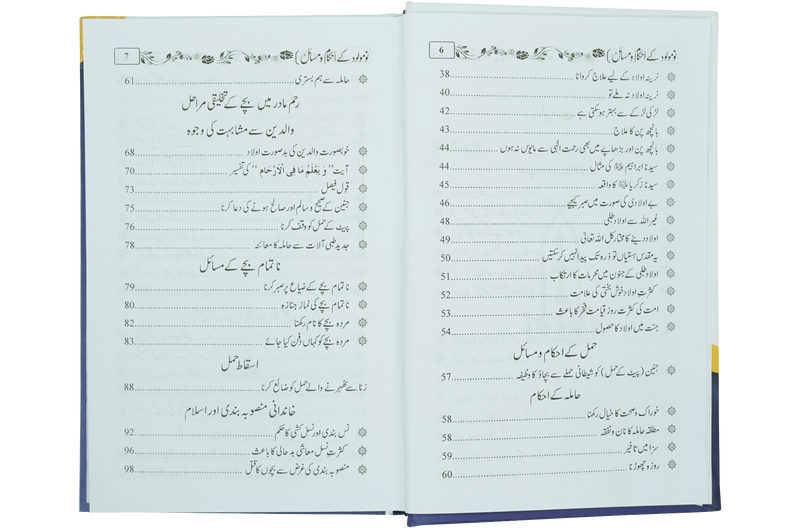 نومولود کے احکام و مسائل 6
نرینہ اولاد کے لیے علاج کروانا 38
نرینہ اولاد نہ ملے تو 40
لڑکی لڑکے سے بہتر ہو سکتی ہے 42
بانجھ پن کا علاج 43
بانجھ پن اور بڑھاپے میں بھی رحمت الٰہی سے مایوس نہ ہوں 44
سیدنا ابراہیم علیہ السلام کی مثال 44
سیدنا زکریا علیہ السلام کا واقعہ 45
بے اولادی کی صورت میں صبر کیجیے 46
غیر اللہ سے اولاد طلبی 48
اولاد دینے کا مختار کل اللہ تعالیٰ 49
یہ مقدس ہستیاں تو ذرہ تک پیدا نہیں کر سکتیں 50
اولاد طلبی کے جنون میں محرمات کا ارتکاب 51
کثرتِ اولاد خوش بختی کی علامت 52
امت کی کثرت روز قیامت فخر کا باعث 53
جنت میں اولاد کا حصول 54
حمل کے احکام و مسائل
جنین (پیٹ کے حمل) کو شیطانی حملے سے بچاؤ کا وظیفہ 57
حاملہ کے احکام
خوراک و صحت کا خیال رکھنا 58
مطلقہ حاملہ کا نان و نفقہ 58
سزا میں تاخیر 59
روزہ چھوڑنا 60
نومولود کے احکام و مسائل 7
حاملہ سے ہم بستری 61
رحم مادر میں بچے کے تخلیقی مراحل
والدین سے مشابہت کی وجوہ
خوبصورت والدین کی بدصورت اولاد 68
آیت ’’وَ یَعْلَمُ مَا فِی الْاَرْحَامِ‘‘ کی تفسیر 70
قول فیصل 73
جنین کے صحیح و سالم اور صالح ہونے کی دعا کرنا 75
پیٹ کے حمل کو وقف کرنا 76
جدید طبی آلات سے حاملہ کا معائنہ 78
ناتمام بچے کے مسائل
ناتمام بچے کے ضیاع پر صبر کرنا 79
ناتمام بچے کی نماز جنازہ 80
مردہ بچے کا نام رکھنا 82
مردہ بچے کو کہاں دفن کیا جائے 83
اسقاط حمل
زنا سے ٹھہرنے والے حمل کو ضائع کرنا 88
خاندانی منصوبہ بندی اور اسلام
نس بندی اور نسل کشی کا حکم 92
کثرتِ نسل معاشی بدحالی کا باعث 96
منصوبہ بندی کی غرض سے بچوں کا قتل 98